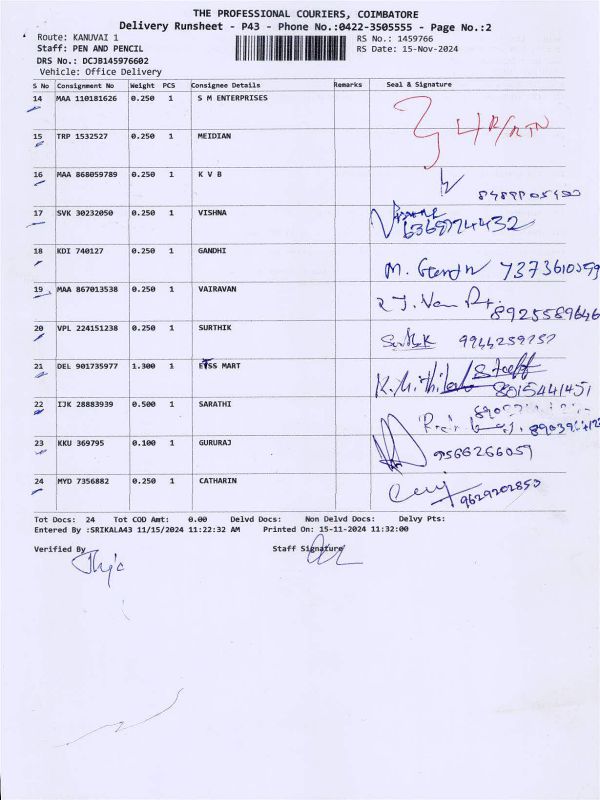 THE PROFESSIONAL COURIERS, COIMBATORE
Delivery Runsheet - P43 - Phone No.:0422-3505555 - Page No.:2
Route: KANUVAI 1
RS No.: 1459766
Staff: PEN AND PENCIL
RS Date: 15-Nov-2024
DRS No.: DCJB145976602
Vehicle: Office Delivery
S No Consignment No Weight PCS Consignee Details Remarks Seal & Signature
14 MAA 110181626 0.250 1 S M ENTERPRISES
15 TRP 1532527 0.250 1 MEIDIAN
16 MAA 868059789 0.250 1 K V B
17 SVK 30232050 0.250 1 VISHNA
18 KDI 740127 0.250 1 GANDHI 7373610559
19 MAA 867013538 0.250 1 VAIRAVAN 8925589646
20 VPL 224151238 0.250 1 SURTHIK 9944259252
21 DEL 901735977 1.300 1 SMART 8015441451
22 IJK 28883939 0.500 1 SARATHI
23 KKU 369795 0.100 1 GURURAJ 9566266059
24 MYD 7356882 0.250 1 CATHARIN 9629202850
Tot Docs: 24 Tot COD Amt: 0.00 Delvd Docs: Non Delvd Docs: Delvy Pts:
Entered By :SRIKALA43 11/15/2024 11:22:32 AM Printed On: 15-11-2024 11:32:00
Verified By
Staff Signature